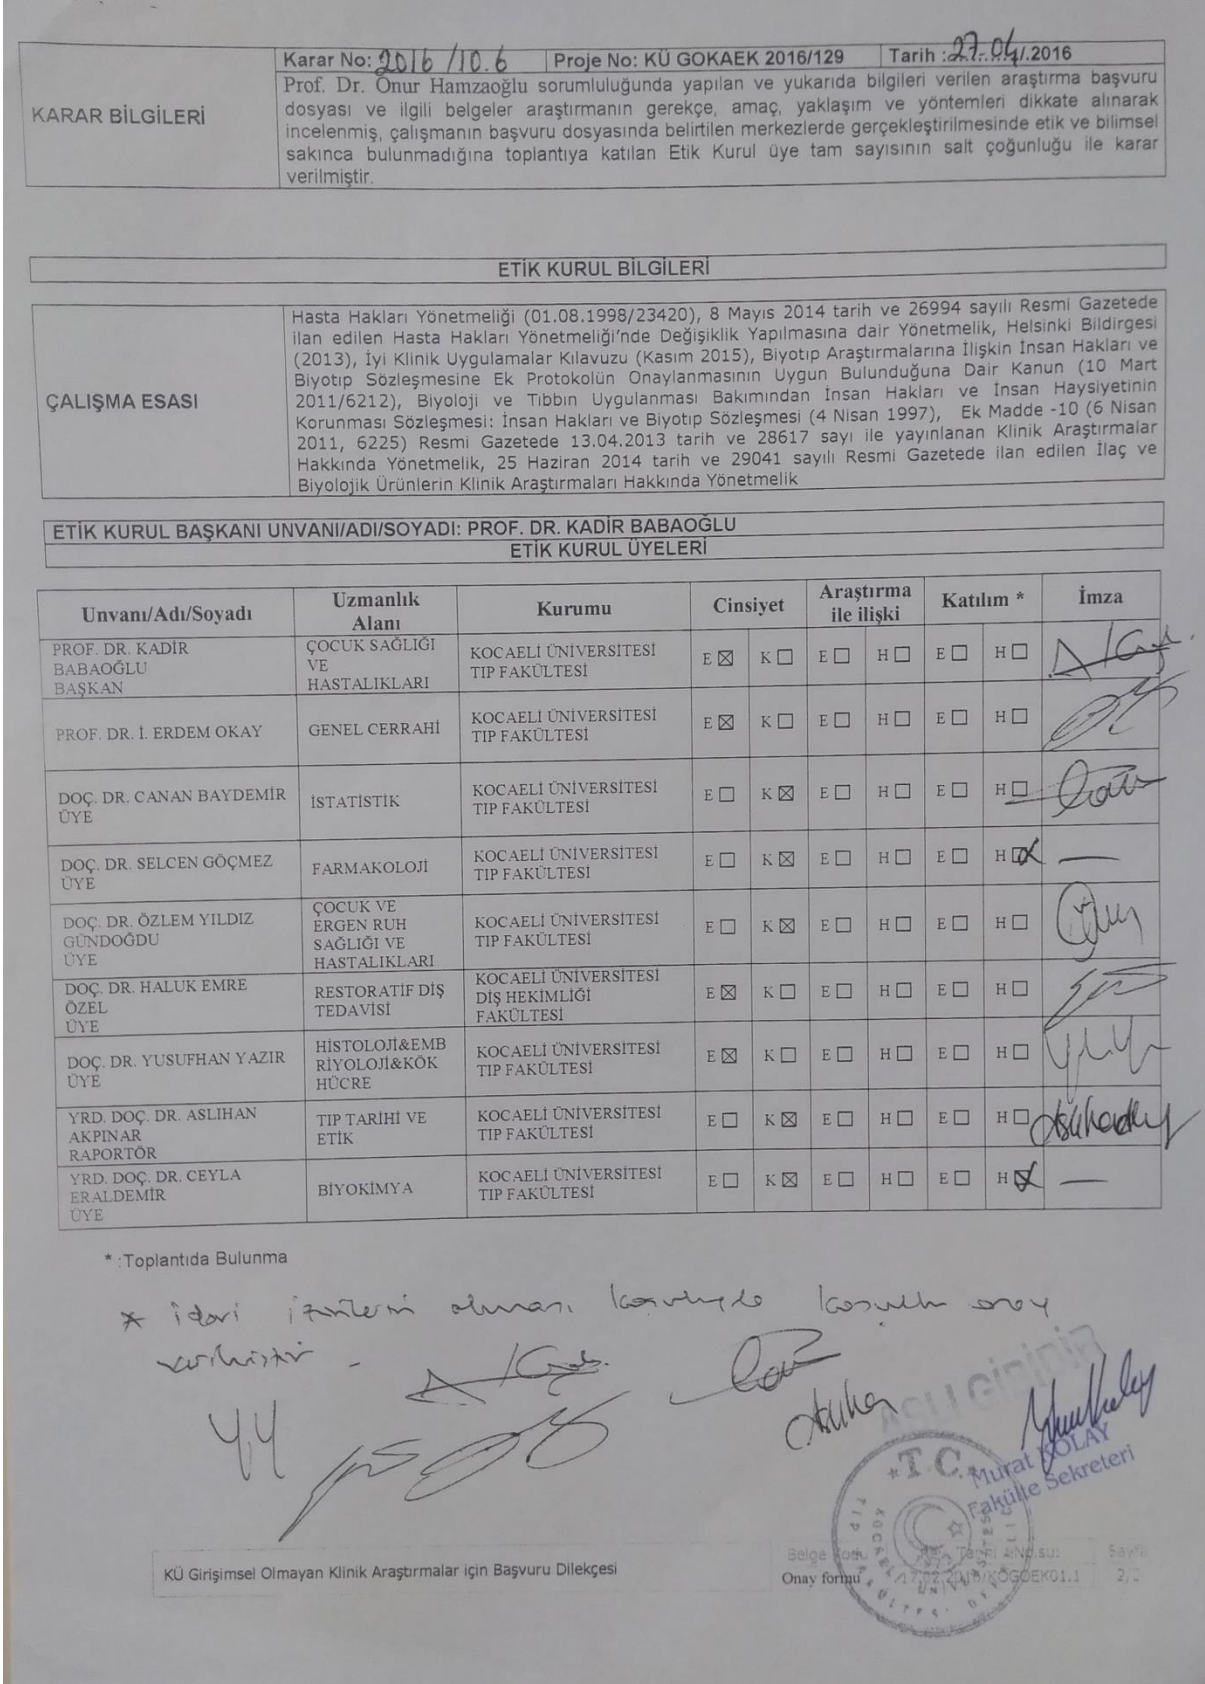 Karar No: 2016/10.6 Proje No: KÜ GOKAEK 2016/129 Tarih : 27.04/.2016
KARAR BİLGİLERİ
Prof. Dr. Onur Hamzaoğlu sorumluluğunda yapılan ve yukarıda bilgileri verilen araştırma başvuru
dosyası ve ilgili belgeler araştırmanın gerekçe, amaç, yaklaşım ve yöntemleri dikkate alınarak
incelenmiş, çalışmanın başvuru dosyasında belirtilen merkezlerde gerçekleştirilmesinde etik ve bilimsel
sakınca bulunmadığına toplantıya katılan Etik Kurul üye tam sayısının salt çoğunluğu ile karar
verilmiştir.
ETİK KURUL BİLGİLERİ
ÇALIŞMA ESASI
Hasta Hakları Yönetmeliği (01.08.1998/23420), 8 Mayıs 2014 tarih ve 26994 sayılı Resmi Gazetede
ilan edilen Hasta Hakları Yönetmeliği'nde Değişiklik Yapılmasına dair Yönetmelik, Helsinki Bildirgesi
(2013), İyi Klinik Uygulamalar Kılavuzu (Kasım 2015), Biyotıp Araştırmalarına İlişkin İnsan Hakları ve
Biyotıp Sözleşmesine Ek Protokolün Onaylanmasının Uygun Bulunduğuna Dair Kanun (10 Mart
2011/6212), Biyoloji ve Tıbbın Uygulanması Bakımından İnsan Hakları ve İnsan Haysiyetinin
Korunması Sözleşmesi: İnsan Hakları ve Biyotıp Sözleşmesi (4 Nisan 1997), Ek Madde -10 (6 Nisan
2011, 6225) Resmi Gazetede 13.04.2013 tarih ve 28617 sayı ile yayınlanan Klinik Araştırmalar
Hakkında Yönetmelik, 25 Haziran 2014 tarih ve 29041 sayılı Resmi Gazetede ilan edilen İlaç ve
Biyolojik Ürünlerin Klinik Araştırmaları Hakkında Yönetmelik
ETİK KURUL BAŞKANI UNVANI/ADI/SOYADI: PROF. DR. KADİR BABAOĞLU
ETİK KURUL ÜYELERİ
Unvanı/Adı/Soyadı Uzmanlık Alanı Kurumu Cinsiyet Araştırma ile ilişki Katılım * İmza
PROF. DR. KADİR BABAOĞLU BAŞKAN ÇOCUK SAĞLIĞI VE HASTALIKLARI KOCAELİ ÜNİVERSİTESİ TIP FAKÜLTESİ E ☒ K ☐ E ☐ H ☐ E ☐ H ☐
PROF. DR. İ. ERDEM OKAY GENEL CERRAHİ KOCAELİ ÜNİVERSİTESİ TIP FAKÜLTESİ E ☒ K ☐ E ☐ H ☐ E ☐ H ☐
DOÇ. DR. CANAN BAYDEMİR ÜYE İSTATİSTİK KOCAELİ ÜNİVERSİTESİ TIP FAKÜLTESİ E ☐ K ☒ E ☐ H ☐ E ☐ H ☐
DOÇ. DR. SELCEN GÖÇMEZ ÜYE FARMAKOLOJİ KOCAELİ ÜNİVERSİTESİ TIP FAKÜLTESİ E ☐ K ☒ E ☐ H ☐ E ☐ H ☒ —
DOÇ. DR. ÖZLEM YILDIZ GÜNDOĞDU ÜYE ÇOCUK VE ERGEN RUH SAĞLIĞI VE HASTALIKLARI KOCAELİ ÜNİVERSİTESİ TIP FAKÜLTESİ E ☐ K ☒ E ☐ H ☐ E ☐ H ☐
DOÇ. DR. HALUK EMRE ÖZEL ÜYE RESTORATİF DİŞ TEDAVİSİ KOCAELİ ÜNİVERSİTESİ DİŞ HEKİMLİĞİ FAKÜLTESİ E ☒ K ☐ E ☐ H ☐ E ☐ H ☐
DOÇ. DR. YUSUFHAN YAZIR ÜYE HİSTOLOJİ&EMB RİYOLOJİ&KÖK HÜCRE KOCAELİ ÜNİVERSİTESİ TIP FAKÜLTESİ E ☒ K ☐ E ☐ H ☐ E ☐ H ☐
YRD. DOÇ. DR. ASLIHAN AKPINAR RAPORTÖR TIP TARİHİ VE ETİK KOCAELİ ÜNİVERSİTESİ TIP FAKÜLTESİ E ☐ K ☒ E ☐ H ☐ E ☐ H ☐
YRD. DOÇ. DR. CEYLA ERALDEMİR ÜYE BİYOKİMYA KOCAELİ ÜNİVERSİTESİ TIP FAKÜLTESİ E ☐ K ☒ E ☐ H ☐ E ☐ H ☒ —
* :Toplantıda Bulunma
* idari izinlerin alınması koşuluyla koşullu onay
verilmiştir -
ASLI GİBİDİR
Murat KOLAY
Fakülte Sekreteri
T.C.
KÜ Girişimsel Olmayan Klinik Araştırmalar için Başvuru Dilekçesi
Belge Kodu
Onay formu